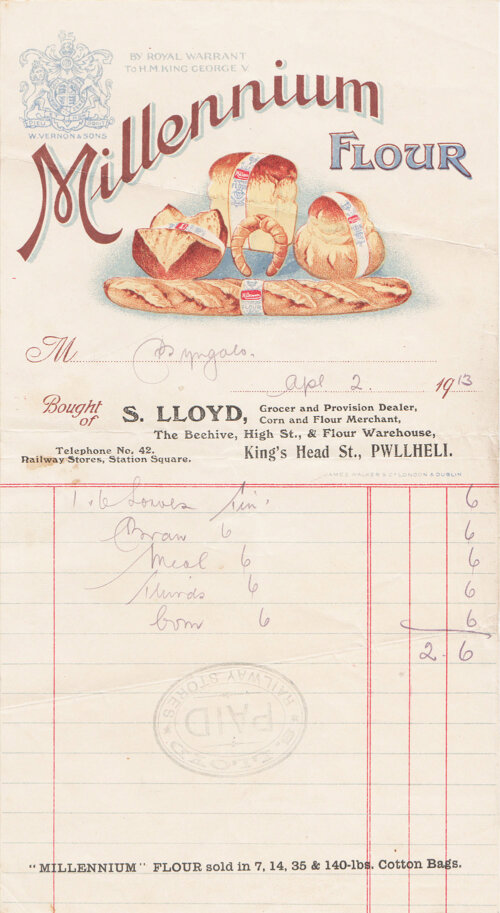 BY ROYAL WARRANT
TO H.M. KING GEORGE V.
W. VERNON & SONS
Millennium
FLOUR
M
Apl 2. 1913
Bought of S. LLOYD, Grocer and Provision Dealer,
Corn and Flour Merchant,
The Beehive, High St., & Flour Warehouse,
Telephone No. 42. King's Head St., PWLLHELI.
Railway Stores, Station Square.
JAMES WALKER & CO LONDON & DUBLIN
1. 6 Loaves Tin. 6
Bran 6 6
Meal 6 6
Thirds 6 6
Corn 6 6
2. 6
S. LLOYD
RAILWAY STORES
PAID
"MILLENNIUM" FLOUR sold in 7, 14, 35 & 140-lbs. Cotton Bags.